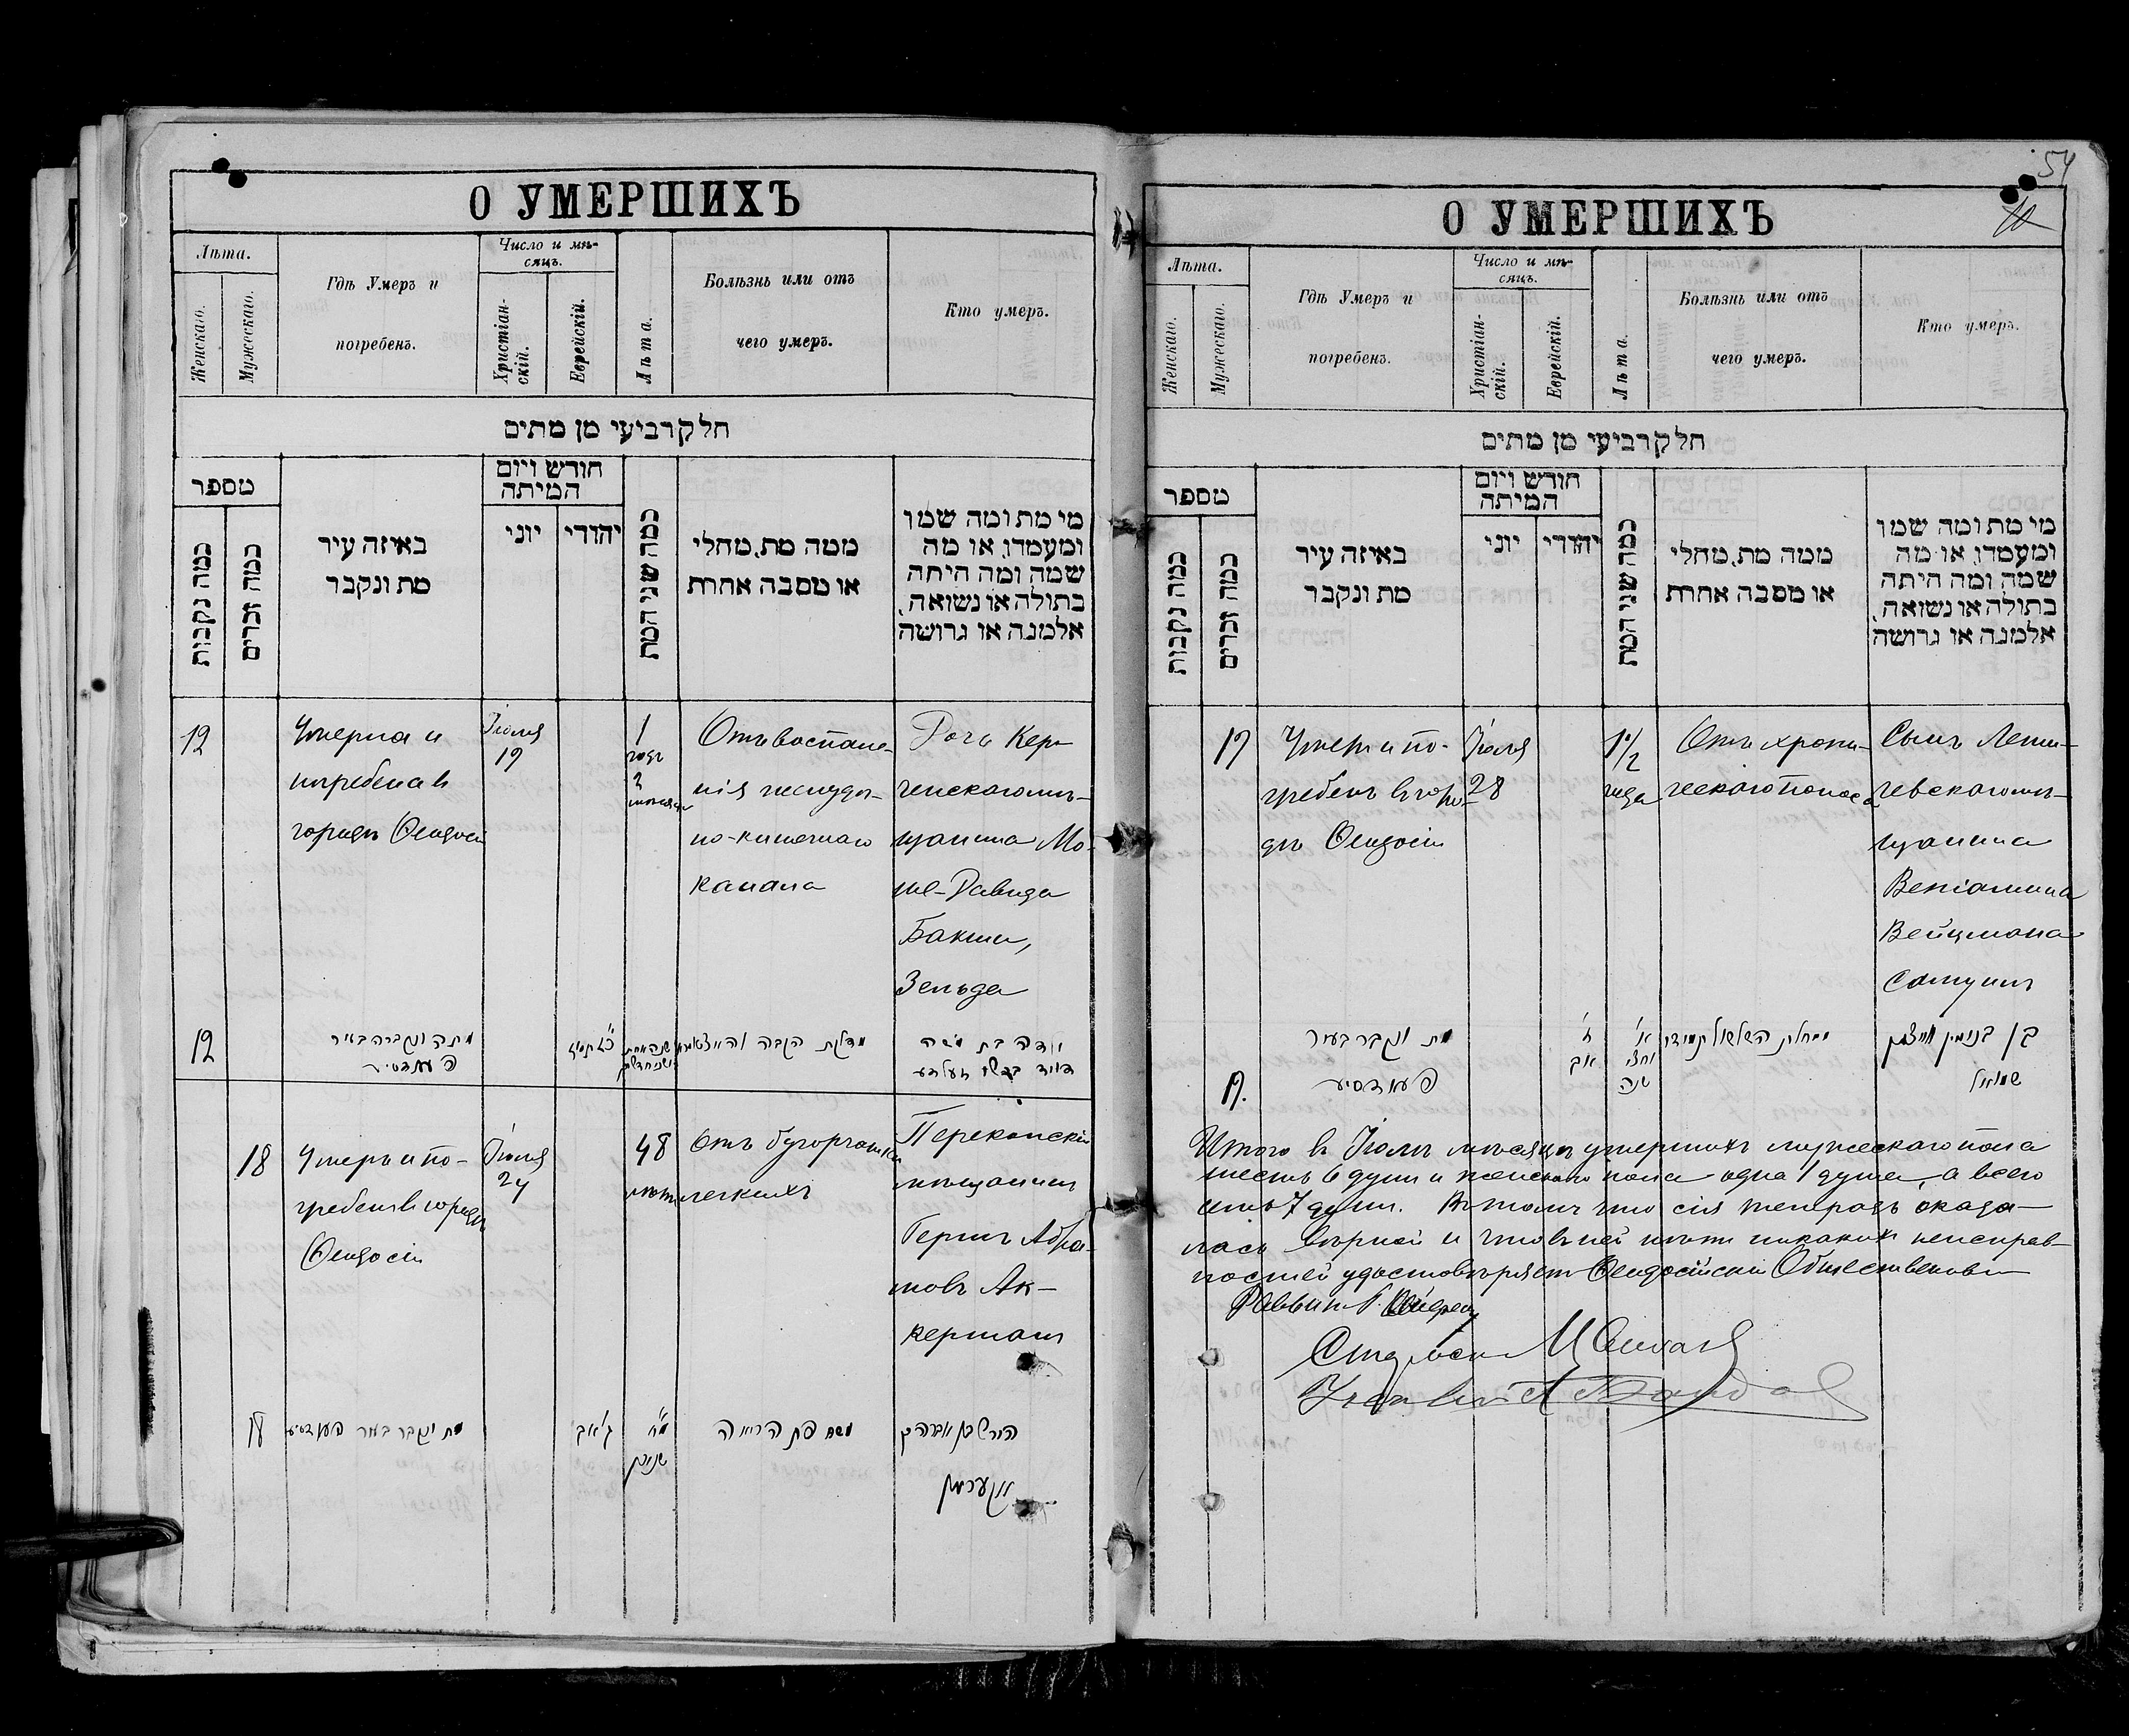 О УМЕРШИХЪ
Лѣта.
Женскаго.
Мужескаго.
Гдѣ Умеръ и
погребенъ.
Число и мѣ-
сяцъ.
Христіан-
скій.
Еврейскій.
Лѣта.
Болѣзнь или отъ
чего умеръ.
Кто умеръ.
חלק רביעי מן מתים
מספר
כמה נקבות
כמה זכרים
באיזה עיר
מת ונקבר
חודש ויום
המיתה
יוני
יהודי
כמה שני המת
ממה מת, מחלי
או מסבה אחרת
מי מת ומה שמו
ומעמדו, או מה
שמה ומה היתה
בתולה או נשואה,
אלמנה או גרושה
12
Умерла и
погребена въ
городѣ Ѳеодосіи
Іюля
19
1
годъ
2
мѣсяца
Отъ воспале-
нія желудоч-
но-кишечнаго
канала
Дочь Кер-
ченскаго мѣ-
щанина Мо-
ше-Давида
Бакши,
Зельда
12
מתה ונקברה בעיר
שנה אחת
דלקת הקבה
18
Умеръ и по-
гребенъ въ городѣ
Ѳеодосіи
Іюля
24
48
лѣтъ
Отъ бугорчатки
легкихъ
Перекопскій
мѣщанинъ
Гершъ Абра-
мовъ Ак-
керманъ
18
מת ונקבר בעיר
ג' אב
מ"ח
שנים
הירש בן אברהם
אקערמאן
54
О УМЕРШИХЪ
Лѣта.
Женскаго.
Мужескаго.
Гдѣ Умеръ и
погребенъ.
Число и мѣ-
сяцъ.
Христіан-
скій.
Еврейскій.
Лѣта.
Болѣзнь или отъ
чего умеръ.
Кто умеръ.
חלק רביעי מן מתים
מספר
כמה נקבות
כמה זכרים
באיזה עיר
מת ונקבר
חודש ויום
המיתה
יוני
יהודי
כמה שני המת
ממה מת, מחלי
או מסבה אחרת
מי מת ומה שמו
ומעמדו, או מה
שמה ומה היתה
בתולה או נשואה,
אלמנה או גרושה
19
Умеръ и по-
гребенъ въ горо-
дѣ Ѳеодосіи
Іюля
28
1½
года
Отъ хрони-
ческаго поноса
Сынъ Летин-
чевскаго мѣ-
щанина
Веніамина
Вейцмана
Самуилъ
מת ונקבר בעיר
אב
א'
וחצי
שנה
מחלת השלשול
בן בנימין
שמואל
19.
Итого въ Іюлѣ мѣсяцѣ умершихъ мужескаго пола
шесть 6 душъ и женскаго пола одна 1 душа, а всего
семь 7 душъ. Въ томъ что сія тетрадь оказа-
лась вѣрной и что въ ней нѣтъ никакихъ неисправ-
ностей удостовѣряетъ Ѳеодосійскій Общественный
Раввинъ